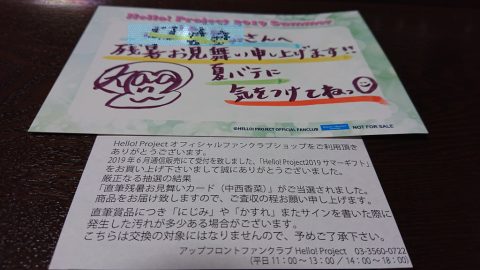 Hello! Project 2019 Summer
さんへ
残暑お見舞い申し上げます!!
夏バテに
気をつけてねっ
©HELLO! PROJECT OFFICIAL FANCLUB
NOT FOR SALE
Hello! Project オフィシャルファンクラブショップをご利用頂き
ありがとうございます。
2019年6月通信販売にて受付を致しました、「Hello! Project2019 サマーギフト」
をお買い上げ下さいまして誠にありがとうございます。
厳正なる抽選の結果
「直筆残暑お見舞いカード（中西香菜）」がご当選されました。
商品をお届け致しますので、ご査収の程お願い申し上げます。
直筆賞品につき「にじみ」や「かすれ」またサインを書いた際に
発生した汚れが多少ある場合がございます。
こちらは交換の対象にはなりませんので、予めご了承下さい。
アップフロントファンクラブ Hello! Project 03-3560-0722
(平日 11:00～13:00 / 14:00～18:00)